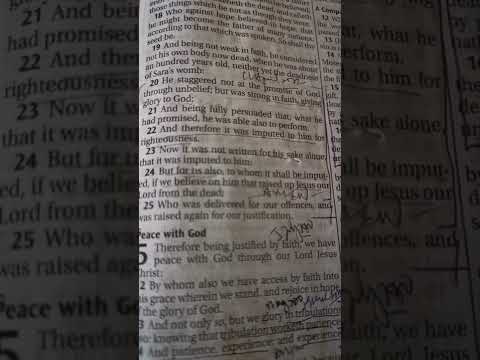 things which be not as though they were.
18 Who against hope believed in hope, that
he might become the father of many nations,
according to that which was spoken, So shall thy
seed be.
19 And being not weak in faith, he considered
not his own body now dead, when he was about
an hundred years old, neither yet the deadness
of Sara's womb:
20 He staggered not at the promise of God
through unbelief; but was strong in faith, giving
glory to God;
21 And being fully persuaded that, what he
had promised, he was able also to perform.
22 And therefore it was imputed to him for
righteousness.
23 Now it was not written for his sake alone,
that it was imputed to him;
24 But for us also, to whom it shall be imput-
ed, if we believe on him that raised up Jesus our
Lord from the dead;
25 Who was delivered for our offences, and
was raised again for our justification.
Peace with God
5 Therefore being justified by faith, we have
peace with God through our Lord Jesus
Christ:
2 By whom also we have access by faith into
this grace wherein we stand, and rejoice in hope
of the glory of God.
3 And not only so, but we glory in tribulations
so: knowing that tribulation worketh patience;
4 And patience, experience; and experience,
21 And being
had promised
22 And there
righteousness
23 Now it w
that it was im
24 But for us
ed, if we belie
Lord from the
25 Who wa
was raised
Peace with G
5 There
3 And
to him for
sake alone,
be imput-
up Jesus our
offences, and